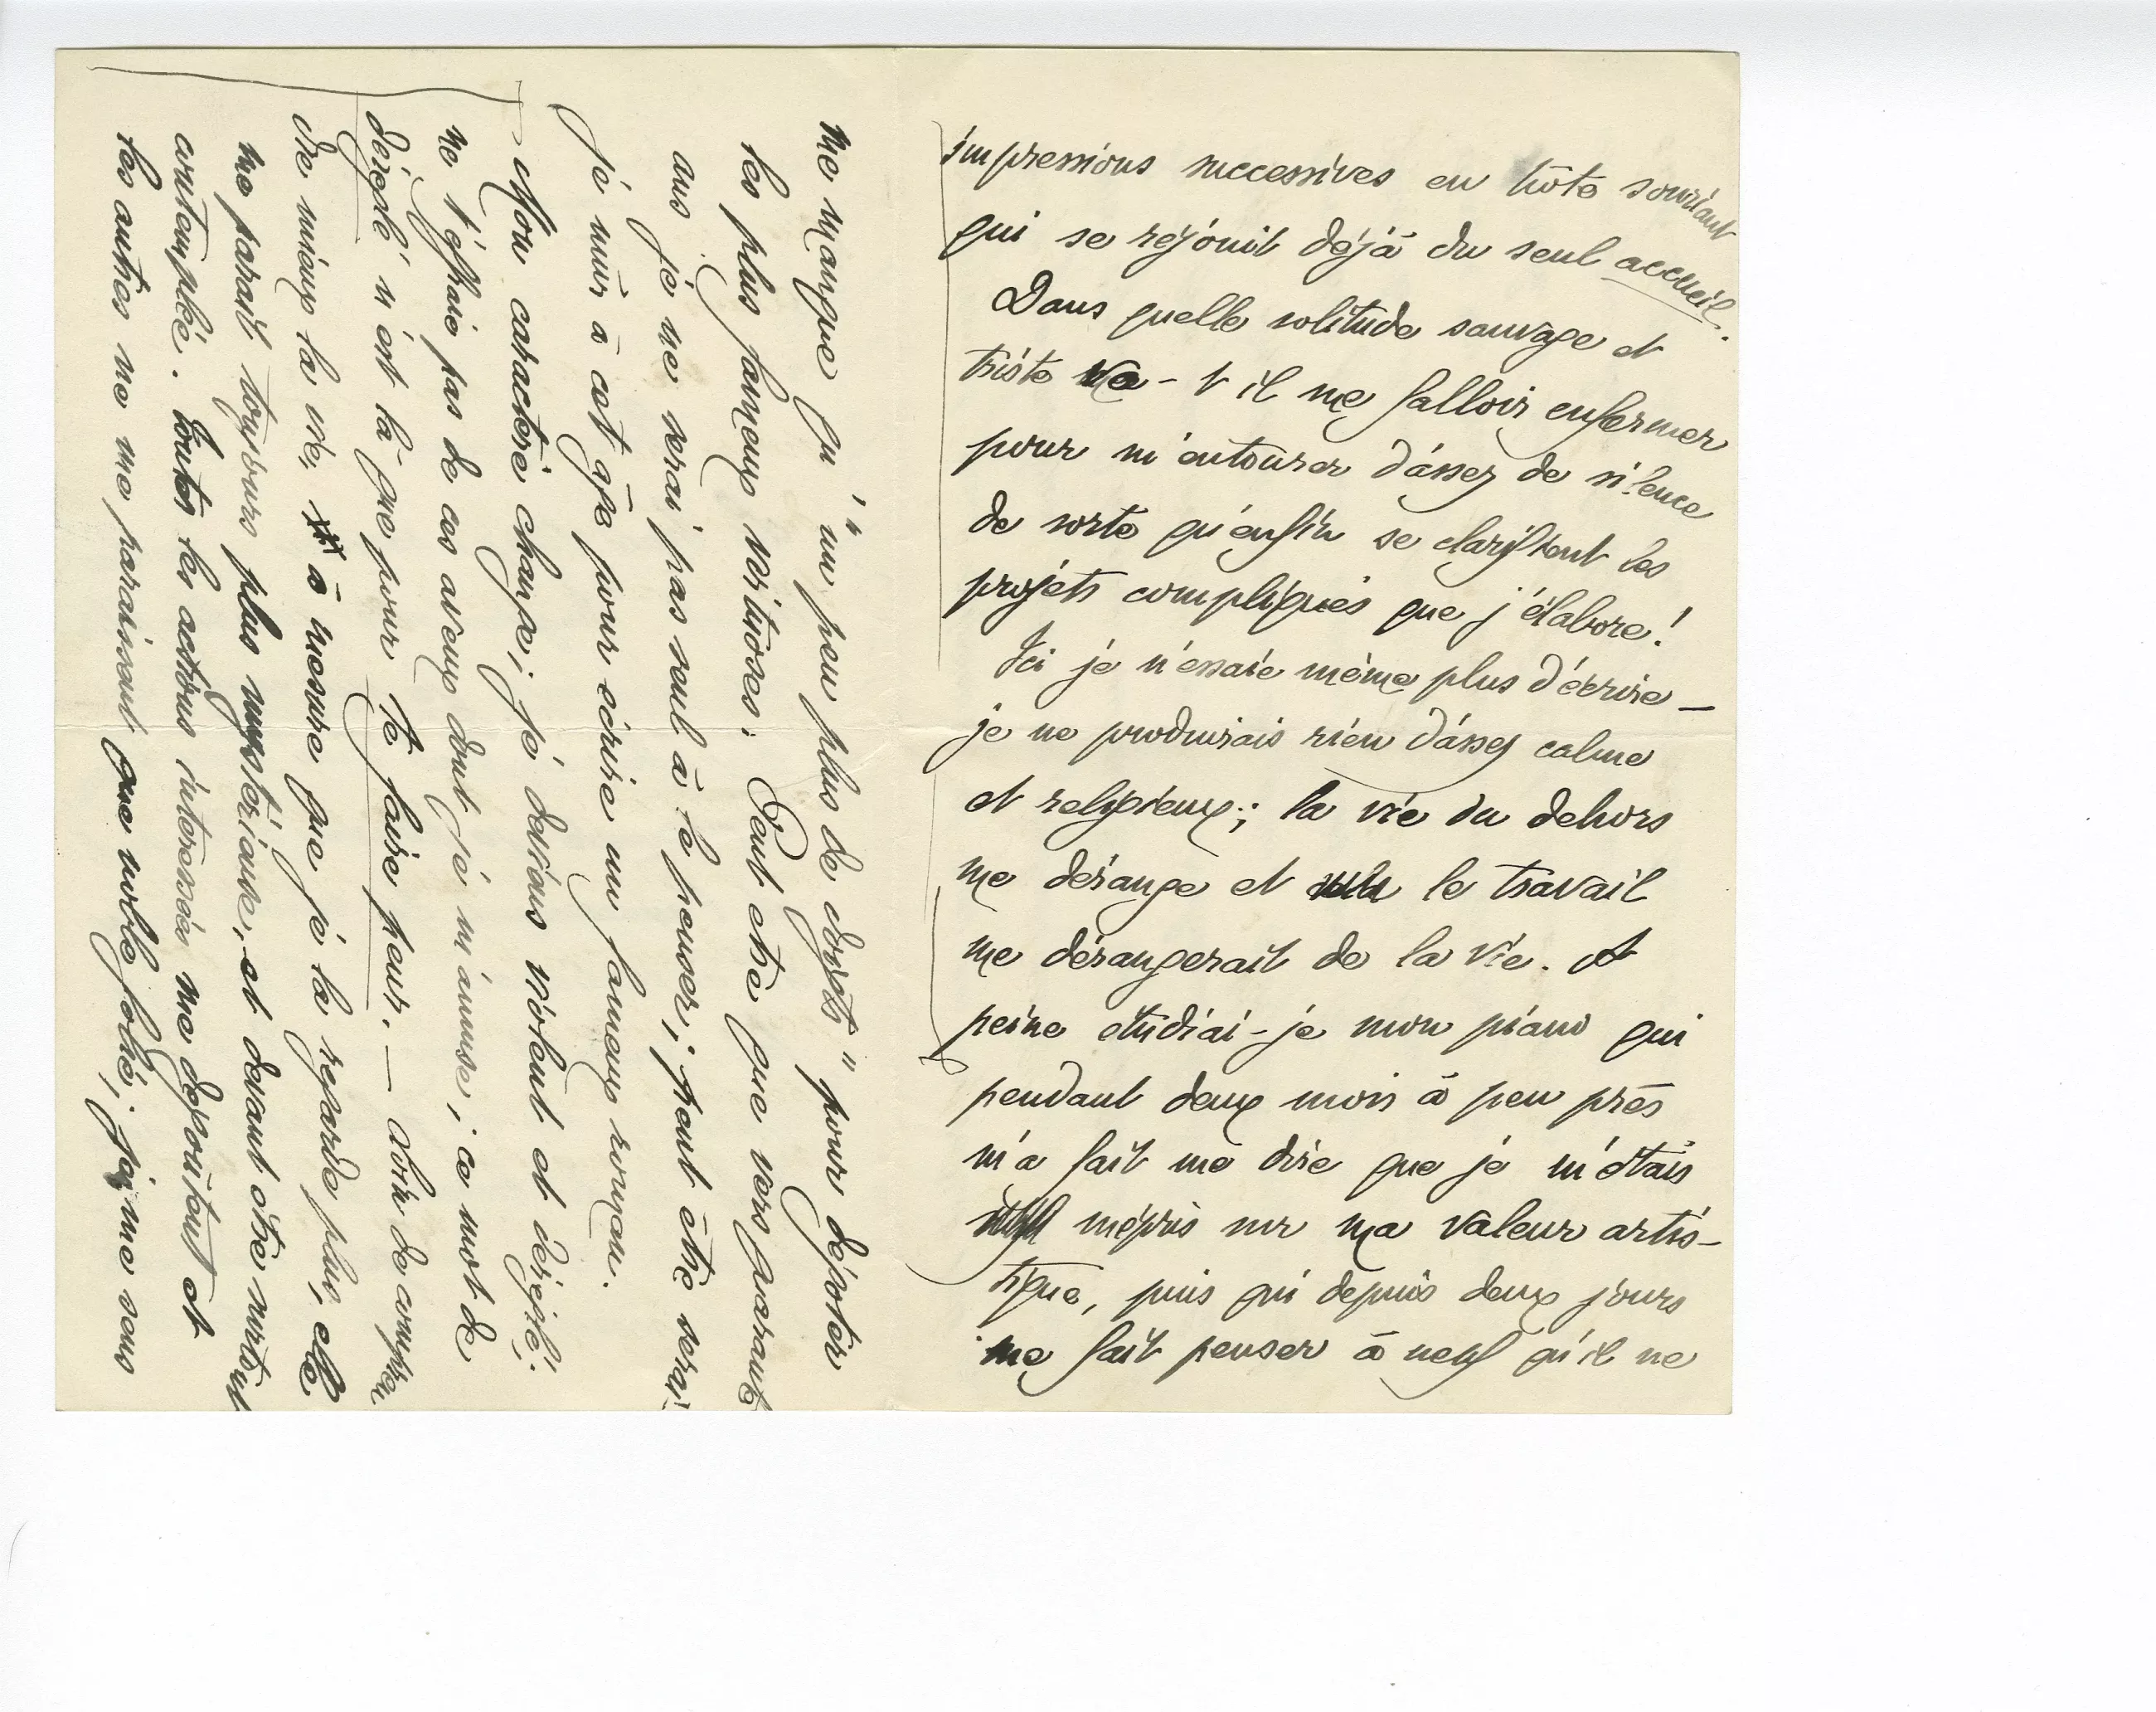 impressions successives en hôte souriant
qui se réjouit déjà du seul accueil.
Dans quelle solitude sauvage et
triste va-t il me falloir enfermer
pour m'entourer d'assez de silence
de sorte qu'enfin se clarifient les
projets compliqués que j'élabore!
Ici je n'essaie même plus d'écrire —
je ne produirais rien d'assez calme
et religieux; la vie du dehors
me dérange et le travail
me dérangerait de la vie. A
peine étudiai-je mon piano qui
pendant deux mois à peu près
m'a fait me dire que je m'étais
mépris sur ma valeur artis-
tique, puis qui depuis deux jours
me fait penser à neuf qu'il ne
me manque qu' "un peu plus de doigts" pour dégoter
les plus fameux virtuoses. Peut etre que vers quarante
ans je ne serai pas seul à le penser; peut être serai
je mûr à cet âge pour écrire un fameux roman.
Mon caractère change; je deviens violent et déréglé;
ne t'effraie pas de ces aveux dont je m'amuse; ce mot de
déréglé n'est là que pour te faire peur. — Loin de compren
dre mieux la vie, à mesure que je la regarde plus, elle
me parait toujours plus mystérieuse, et devant être surtout
contemplée. Toutes les actions interessées me dégoûtent et
les autres ne me paraissent que noble folie; j'aime sans